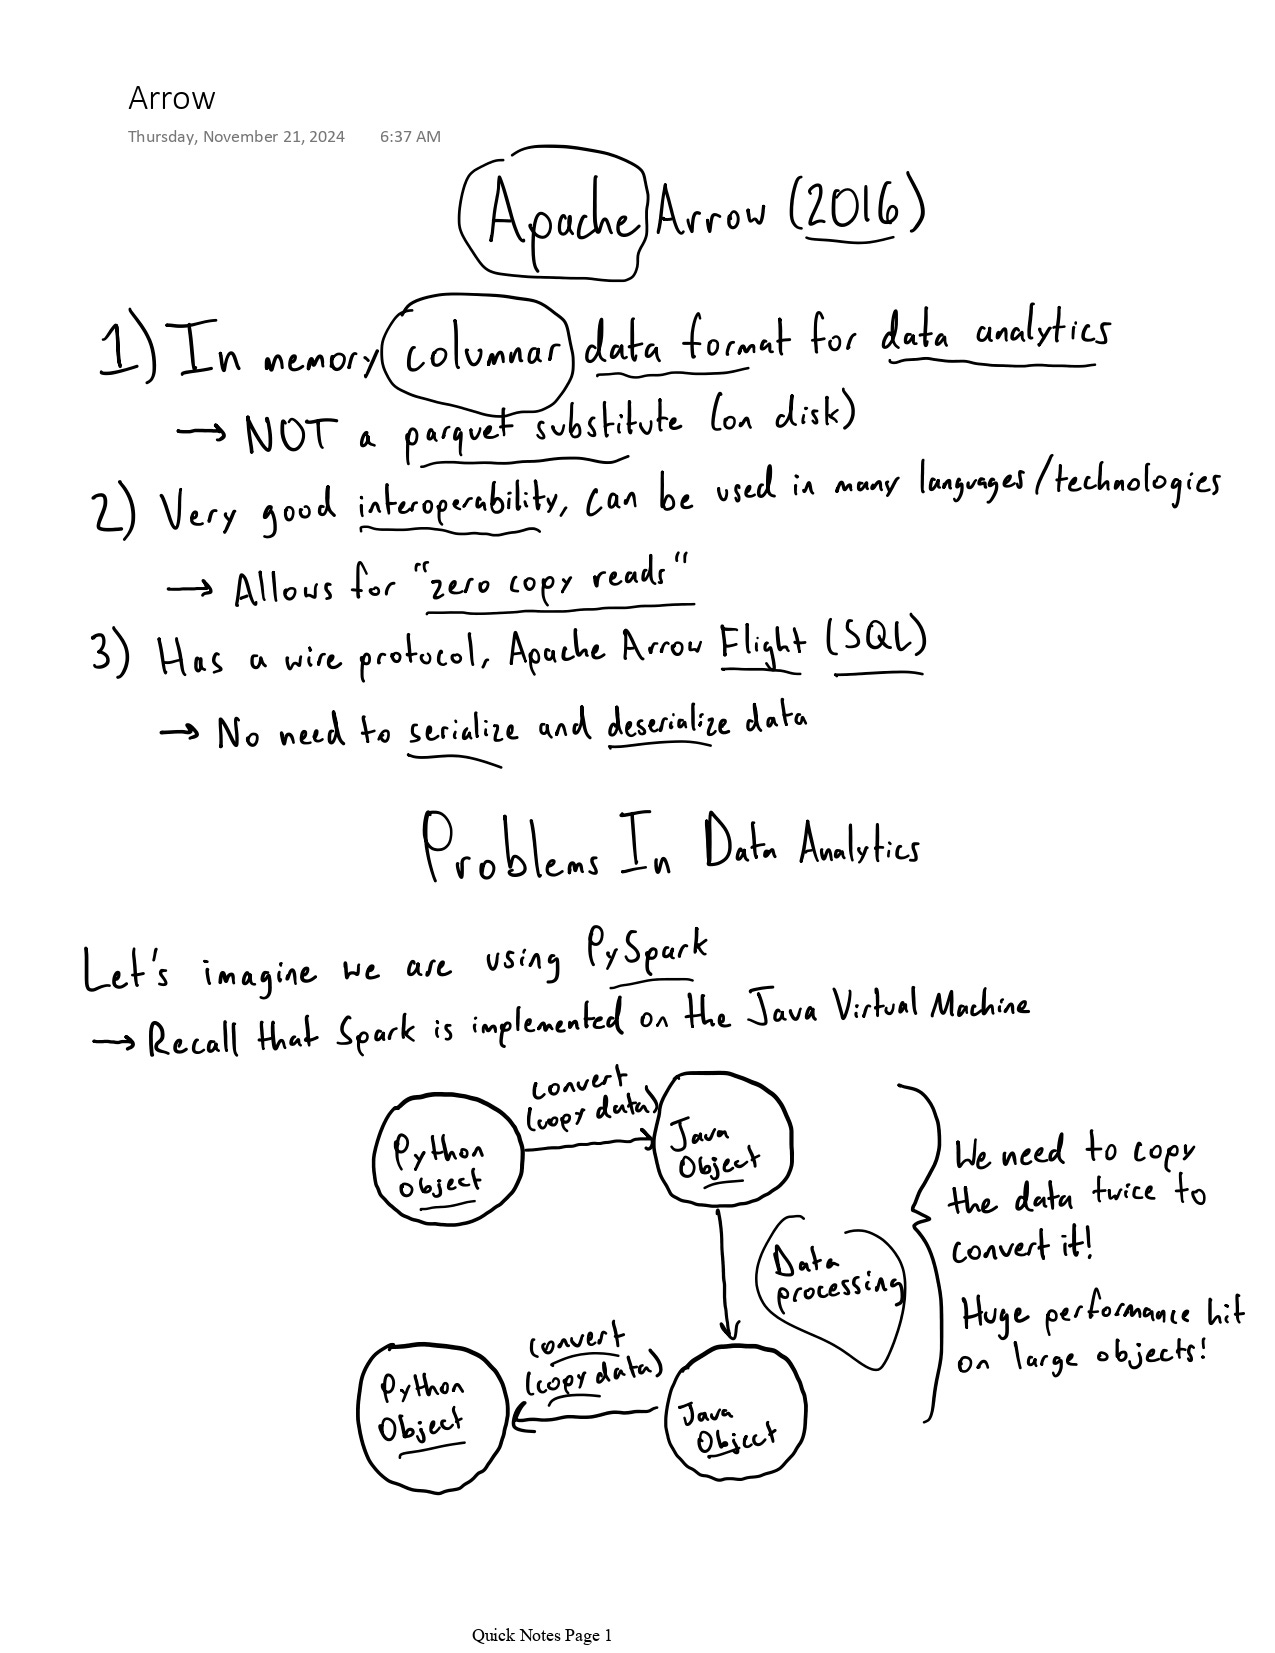 Arrow
Thursday, November 21, 2024 6:37 AM
Apache Arrow (2016)
1) In memory columnar data format for data analytics
→ NOT a parquet substitute (on disk)
2) Very good interoperability, can be used in many languages/technologies
→ Allows for "zero copy reads"
3) Has a wire protocol, Apache Arrow Flight (SQL)
→ No need to serialize and deserialize data
Problems In Data Analytics
Let's imagine we are using PySpark
→ Recall that Spark is implemented on the Java Virtual Machine
Python
Object
convert
(copy data)
Java
Object
Data
processing
We need to copy
the data twice to
convert it!
Huge performance hit
on large objects!
Python
Object
convert
(copy data)
Java
Object
Quick Notes Page 1